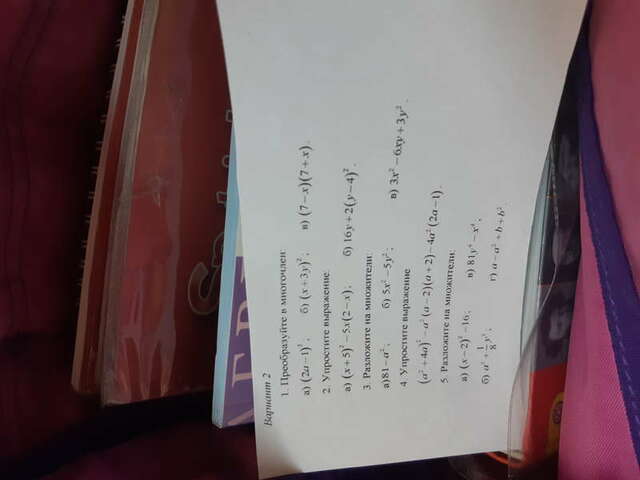 Вариант 2
1. Преобразуйте в многочлен:
а) (2a−1)²; б) (x+3y)²; в) (7−x)(7+x).
2. Упростите выражение:
а) (x+5)²−5x(2−x); б) 16y+2(y−4)².
3. Разложите на множители:
а)81−a²; б) 5x²−5y²; в) 3x²−6xy+3y².
4. Упростите выражение
(a²+4a)²−a²(a−2)(a+2)−4a²(2a−1).
5. Разложите на множители:
а) (x−2)²−16; в) 81y⁴−x⁴;
б) a³+1/8y³; г) a−a²+b+b²